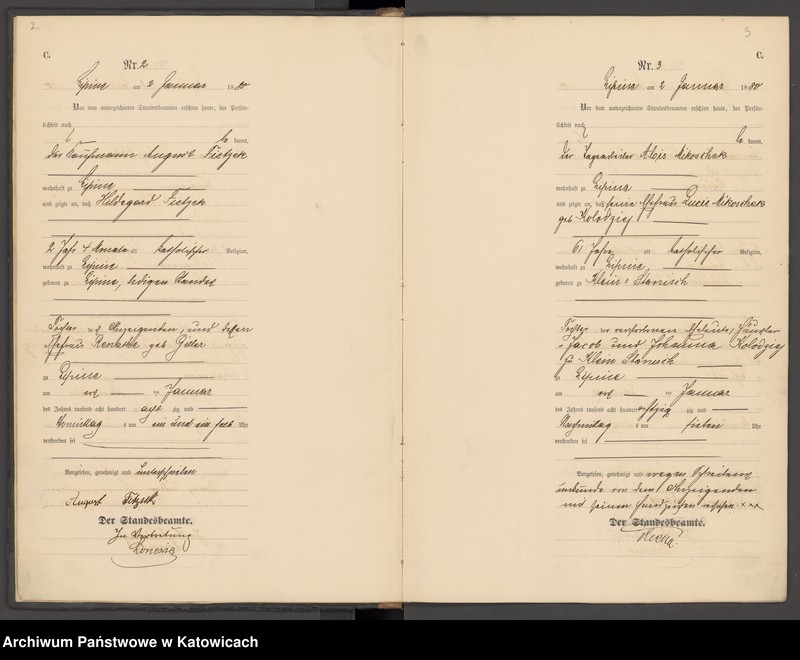 2
C.
Nr. 2
Lipine am 2 Januar 1880
Vor dem unterzeichneten Standesbeamten erschien heute, der Persön-
lichkeit nach
kannt,
der Kaufmann August Fietzek
wohnhaft zu Lipine
und zeigte an, daß Hildegard Fietzek
2 Jahr 4 Monate alt katholischer Religion,
wohnhaft zu Lipine
geboren zu Lipine, ledigen Standes
Tochter des Anzeigenden, und dessen
Ehefrau Renathe geb
zu Lipine
am ersten Januar
des Jahres tausend acht hundert achtzig und
Vormittag um ein und ein halb Uhr
verstorben sei
Vorgelesen, genehmigt und unterschrieben
August Fitzek
Der Standesbeamte.
In Vertretung
3
C.
Nr. 3
Lipine am 2 Januar 1880
Vor dem unterzeichneten Standesbeamten erschien heute, der Persön-
lichkeit nach
kannt,
der Tagearbeiter Alois Mikoschek
wohnhaft zu Lipine
und zeigte an, daß seine Ehefrau Lucie Mikoschek
geb Kolodziej
61 Jahre alt katholischer Religion,
wohnhaft zu Lipine
geboren zu Klein Stanisch
Tochter der verstorbenen Eheleute, Häusler
Jacob und Johanna Kolodziej
zu Klein Stanisch
zu Lipine
am ersten Januar
des Jahres tausend acht hundert achtzig und
Nachmittag um sieben Uhr
verstorben sei
Vorgelesen, genehmigt und wegen Schreibens
unkunde von dem Anzeigenden
mit seinem Handzeichen versehen xxx
Der Standesbeamte.
Archiwum Państwowe w Katowicach